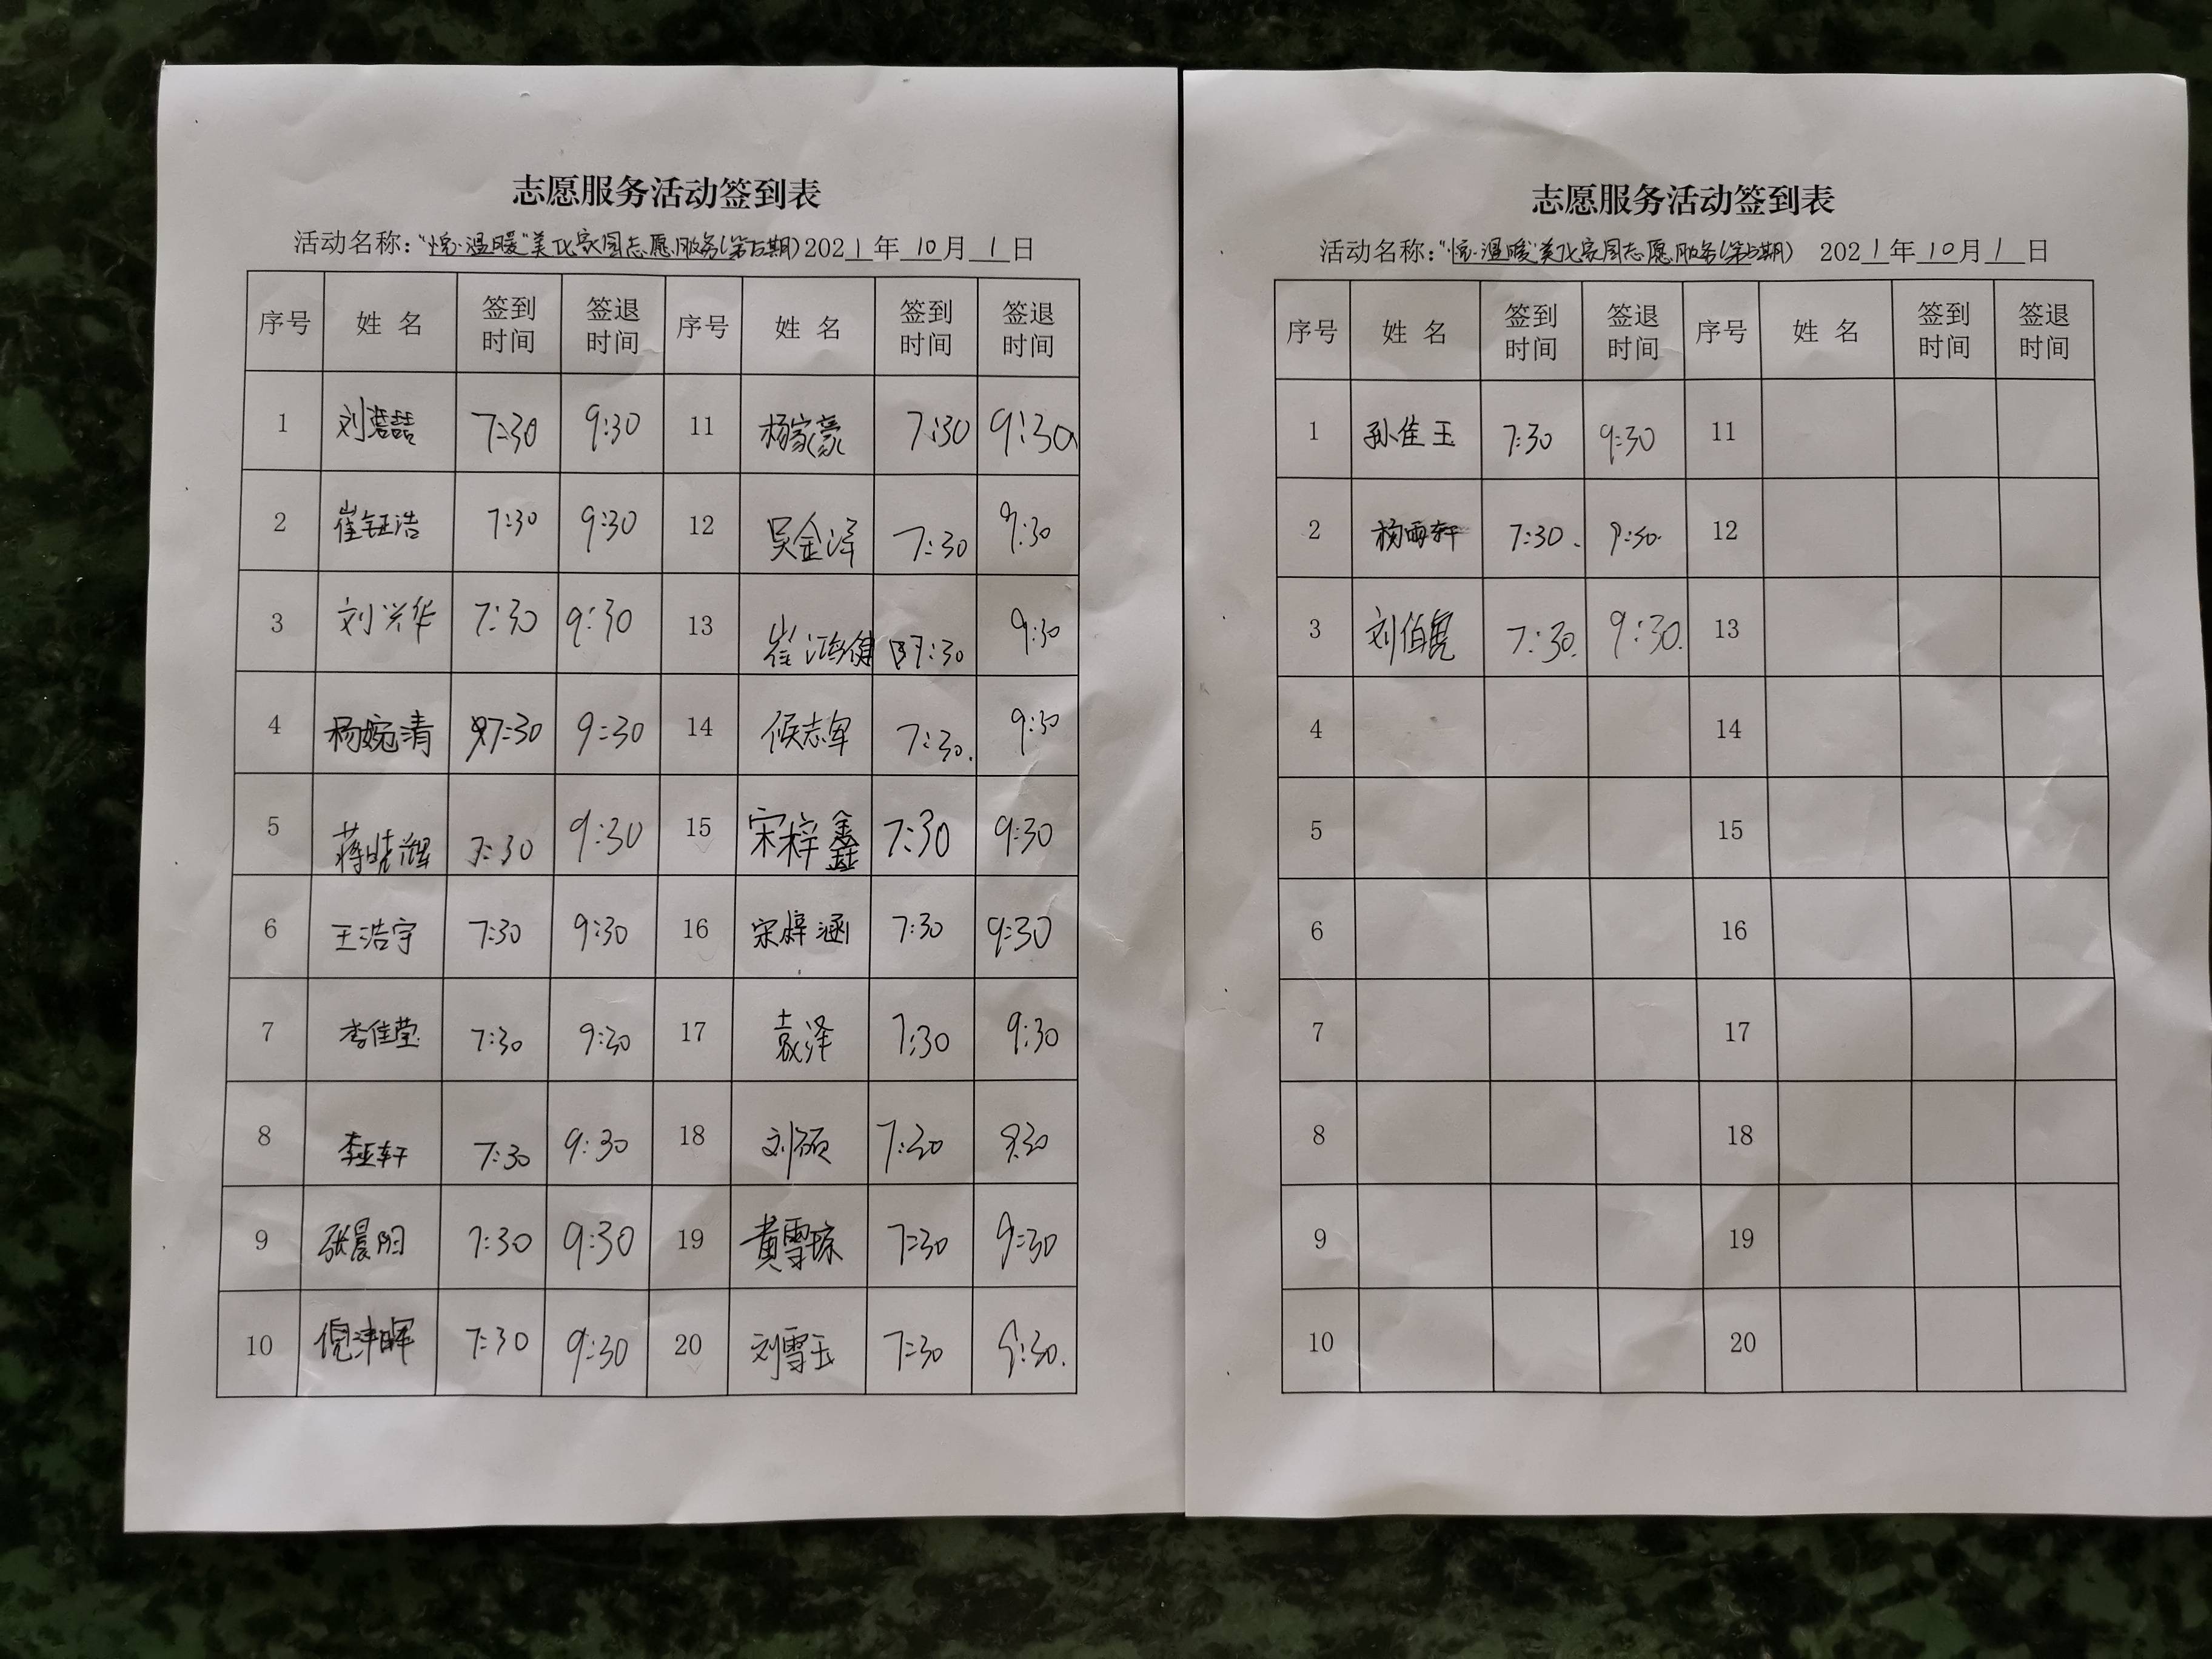 志愿服务活动签到表
活动名称：“悦·温暖”美化家园志愿服务(第五期) 2021年10月1日
序号 姓名 签到时间 签退时间 序号 姓名 签到时间 签退时间
1 刘 7:30 9:30 11 杨家豪 7:30 9:30
2 崔钰浩 7:30 9:30 12 吴金泽 7:30 9:30
3 刘兴华 7:30 9:30 13 崔鸿健 7:30 9:30
4 杨婉清 7:30 9:30 14 侯志军 7:30. 9:30
5 蒋晓 7:30 9:30 15 宋梓鑫 7:30 9:30
6 王浩宇 7:30 9:30 16 宋梓涵 7:30 9:30
7 李佳莹 7:30 9:30 17 袁泽 7:30 9:30
8 李亚轩 7:30 9:30 18 刘硕 7:30 9:30
9 张晨阳 7:30 9:30 19 黄雪琼 7:30 9:30
10 倪沣晖 7:30 9:30 20 刘雪玉 7:30 9:30.
志愿服务活动签到表
活动名称：“悦·温暖”美化家园志愿服务(第五期) 2021年10月1日
序号 姓名 签到时间 签退时间 序号 姓名 签到时间 签退时间
1 孙佳玉 7:30 9:30 11
2 杨雨轩 7:30. 9:30. 12
3 刘伯 7:30. 9:30. 13
4 14
5 15
6 16
7 17
8 18
9 19
10 20